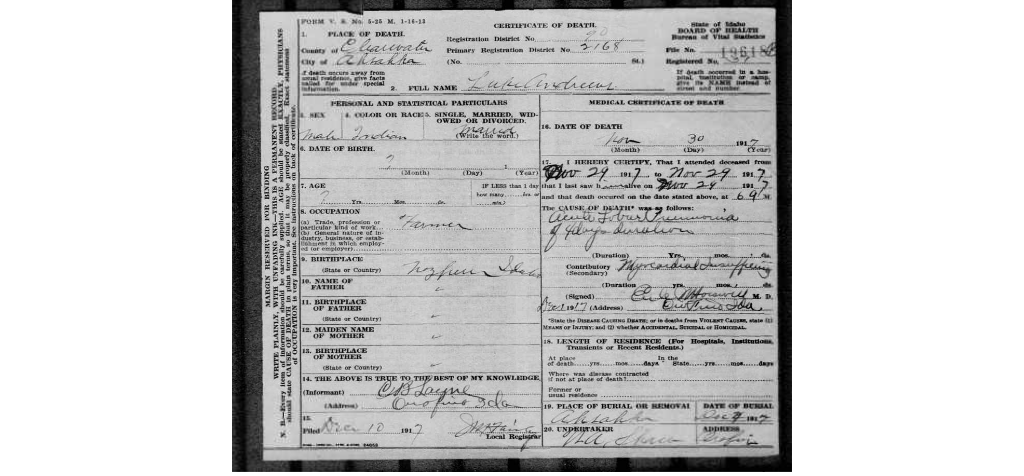 FORM V. S. No. 5-25 M. 1-16-13
CERTIFICATE OF DEATH.
State of Idaho
BOARD OF HEALTH
Bureau of Vital Statistics
1. PLACE OF DEATH.
Registration District No. 90
County of Clearwater
Primary Registration District No. 2168
File No.
City of Ahsahka
(No. St.)
Registered No.
If death occurs away from usual residence, give facts called for under special information.
2. FULL NAME Luke Andrews
If death occurred in a hospital, institution or camp, give its NAME instead of street and number.
PERSONAL AND STATISTICAL PARTICULARS
3. SEX 4. COLOR OR RACE 5. SINGLE, MARRIED, WIDOWED OR DIVORCED.
Male Indian Married
(Write the word.)
6. DATE OF BIRTH.
?
(Month) (Day) (Year)
7. AGE
IF LESS than 1 day
how many hrs. or
?
Yrs. Mos. ds. min.?
8. OCCUPATION
(a) Trade, profession or particular kind of work
Farmer
(b) General nature of industry, business, or establishment in which employed (or employer)
9. BIRTHPLACE
(State or Country) Idaho
10. NAME OF FATHER "
11. BIRTHPLACE OF FATHER "
(State or Country)
12. MAIDEN NAME OF MOTHER "
13. BIRTHPLACE OF MOTHER "
(State or Country)
14. THE ABOVE IS TRUE TO THE BEST OF MY KNOWLEDGE
(Informant) Layne
(Address) Orofino Ida
15.
Filed Dec 10 1917
Local Registrar
MEDICAL CERTIFICATE OF DEATH
16. DATE OF DEATH
Nov 30 1917
(Month) (Day) (Year)
17. I HEREBY CERTIFY, That I attended deceased from
Nov 29 1917 to Nov 29 1917
that I last saw him alive on Nov 29 1917
and that death occurred on the date stated above, at 6 M
The CAUSE OF DEATH* was as follows:
Acute Lobar Pneumonia
of 4 days duration
(Duration) Yrs. mos. ds.
Contributory Myocardial
(Secondary)
(Duration yrs. mos. ds.
(Signed) M. D.
Dec 1 1917 (Address) Orofino Ida
*State the DISEASE CAUSING DEATH; or in deaths from VIOLENT CAUSES, state (1) MEANS OF INJURY; and (2) whether ACCIDENTAL, SUICIDAL OR HOMICIDAL.
18. LENGTH OF RESIDENCE (For Hospitals, Institutions, Transients or Recent Residents.)
At place of death yrs. mos. days In the State yrs. mos. days
Where was disease contracted if not at place of death?
Former or usual residence
19. PLACE OF BURIAL OR REMOVAL DATE OF BURIAL
Ahsahka Dec 1917
20. UNDERTAKER ADDRESS
Orofino
MARGIN RESERVED FOR BINDING
WRITE PLAINLY, WITH UNFADING INK—THIS IS A PERMANENT RECORD.
N. B.—Every item of information should be carefully supplied. AGE should be stated EXACTLY, PHYSICIANS should state CAUSE OF DEATH in plain terms, so that it may be properly classified. Exact statement of OCCUPATION is very important. See instructions on back of certificate.